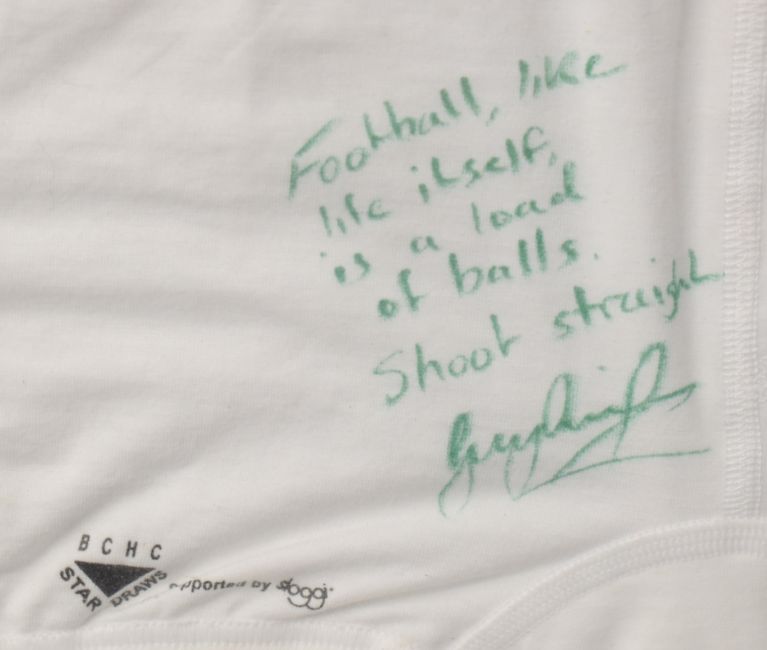 Football, like
life itself,
is a load
of balls.
Shoot straight
BCHC
STAR DRAWS
by sloggi